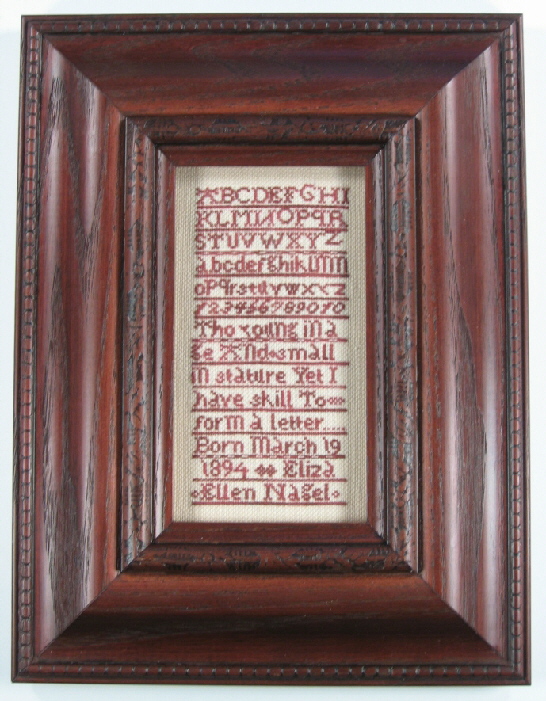 ABCDEFGHI
KLMNOPQR
STUVWXYZ
abcdefghiklmn
opqrstuvwxyz
12345678910
Tho young in a
ge And small
in stature Yet I
have skill To
form a letter....
Born March 19
1894 Eliza
Ellen Nagel